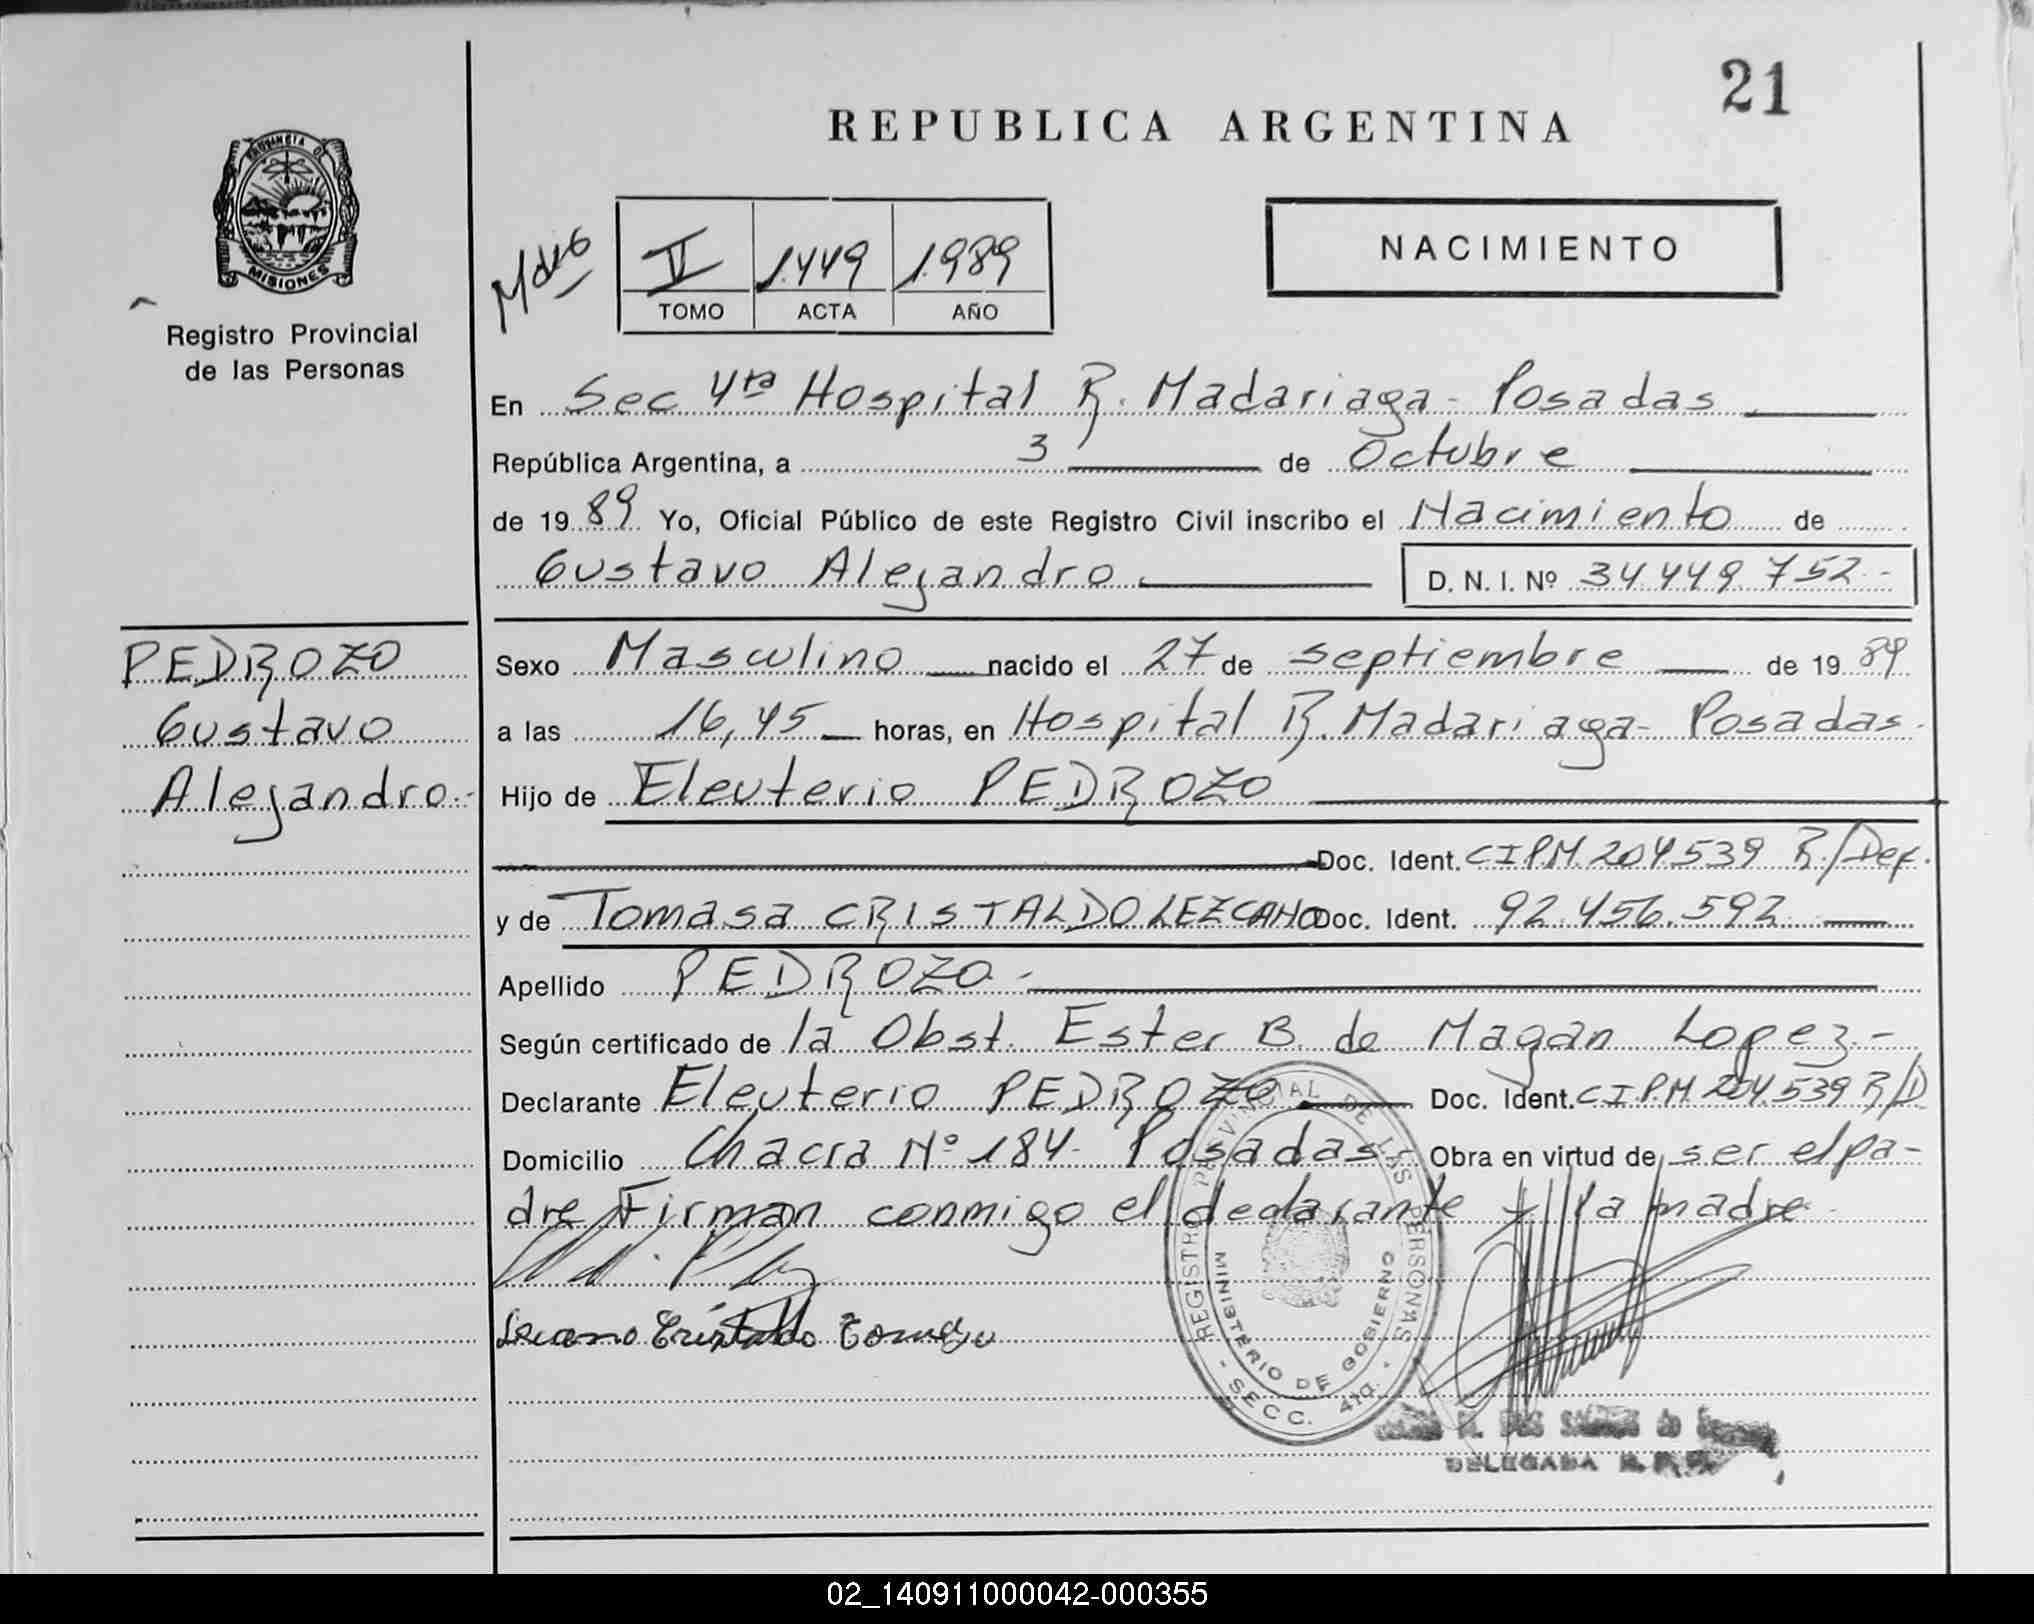 21
REPUBLICA ARGENTINA
PROVINCIA DE
MISIONES
Registro Provincial
de las Personas
II 1.449 1.989
TOMO ACTA AÑO
NACIMIENTO
En Sec 4ta Hospital R. Madariaga - Posadas
República Argentina, a 3 de Octubre
de 1989 Yo, Oficial Público de este Registro Civil inscribo el Nacimiento de
Gustavo Alejandro. D. N. I. Nº 34.449.752.-
PEDROZO
Gustavo
Alejandro.-
Sexo Masculino nacido el 27 de septiembre de 1989
a las 16,45 horas, en Hospital R. Madariaga - Posadas.
Hijo de Eleuterio PEDROZO
Doc. Ident. CIPM 204.539 R/Def.
y de Tomasa CRISTALDO LEZCANO Doc. Ident. 92.456.592
Apellido PEDROZO.-
Según certificado de la Obst. Ester B. de Magan Lopez.-
Declarante Eleuterio PEDROZO Doc. Ident. C.I.P.M. 204.539 R/D
Domicilio Chacra Nº 184- Posadas Obra en virtud de ser el pa-
dre Firman conmigo el declarante y la madre.
REGISTRO PROVINCIAL DE LAS PERSONAS
MINISTERIO DE GOBIERNO
- SECC. 4ta. -
DELEGADA R. P. P.
02_140911000042-000355